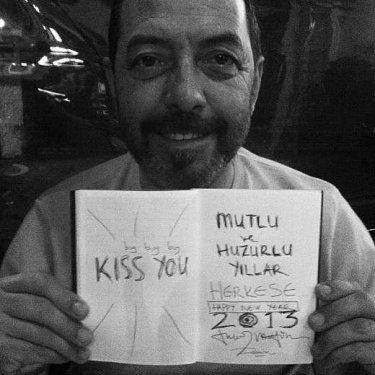 big big big
KISS YOU
MUTLU
ve
HUZURLU
YILLAR
HERKESE
HAPPY NEW YEAR
2013